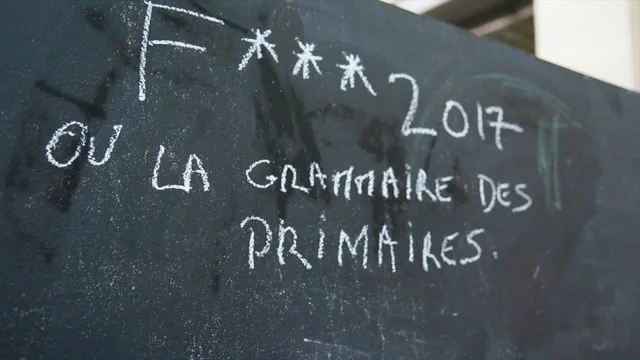 F***2017
OU LA GRAMMAIRE DES
PRIMAIRES.